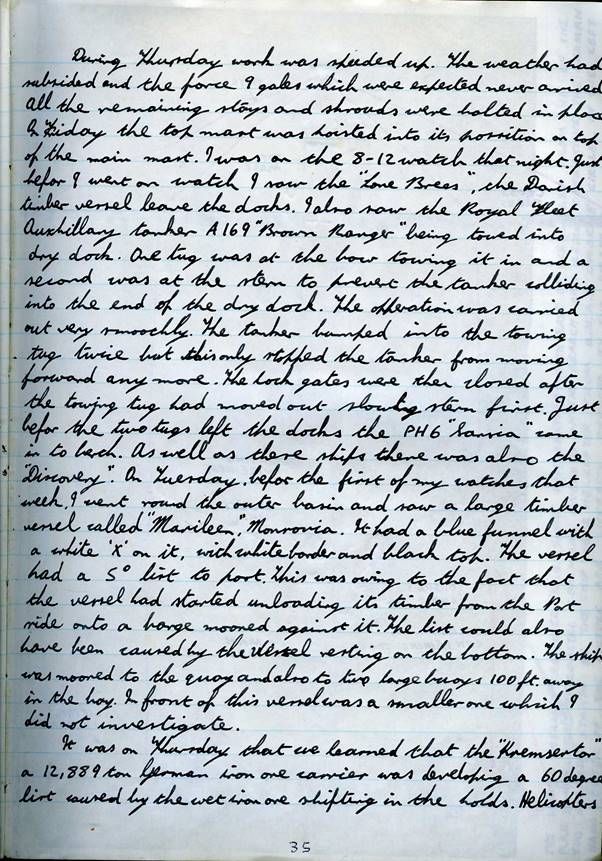 During Thursday work was speeded up. The weather had
subsided and the force 9 gales which were expected never arrived
All the remaining stays and shrouds were bolted in place
On Friday the top mast was hoisted into its possition on top
of the main mast. I was on the 8-12 watch that night. Just
befor I went on watch I saw the "Lone Brees", the Danish
timber vessel leave the docks. I also saw the Royal Fleet
Auxhillary tanker A169 "Brown Ranger" being towed into
dry dock. One tug was at the bow towing it in and a
second was at the stern to prevent the tanker colliding
into the end of the dry dock. The opperation was carried
out very smoothly. The tanker bumped into the towing
tug twice but this only stopped the tanker from moving
forward any more. The lock gates were then closed after
the towing tug had moved out slowly stern first. Just
befor the two tugs left the docks the PH6 "Sansia" came
in to berth. As well as these ships there was also the
"Discovery". On Tuesday, befor the first of my watches that
week, I went round the outer basin and saw a large timber
vessel called "Marileen", Monrovia. It had a blue funnel with
a white 'X' on it, with white border and black top. The vessel
had a 5° list to port. This was owing to the fact that
the vessel had started unloading its timber from the Port
side onto a barge moored against it. The list could also
have been caused by the vessel resting on the bottom. The ship
was moored to the quay and also to two large buoys 100 ft away
in the bay. In front of this vessel was a smaller one which I
did not investigate.
It was on Thursday that we learned that the "Kremsertor"
a 12,889 ton German iron ore carrier was developing a 60 degree
list caused by the wet iron ore shifting in the holds. Helicopters
35